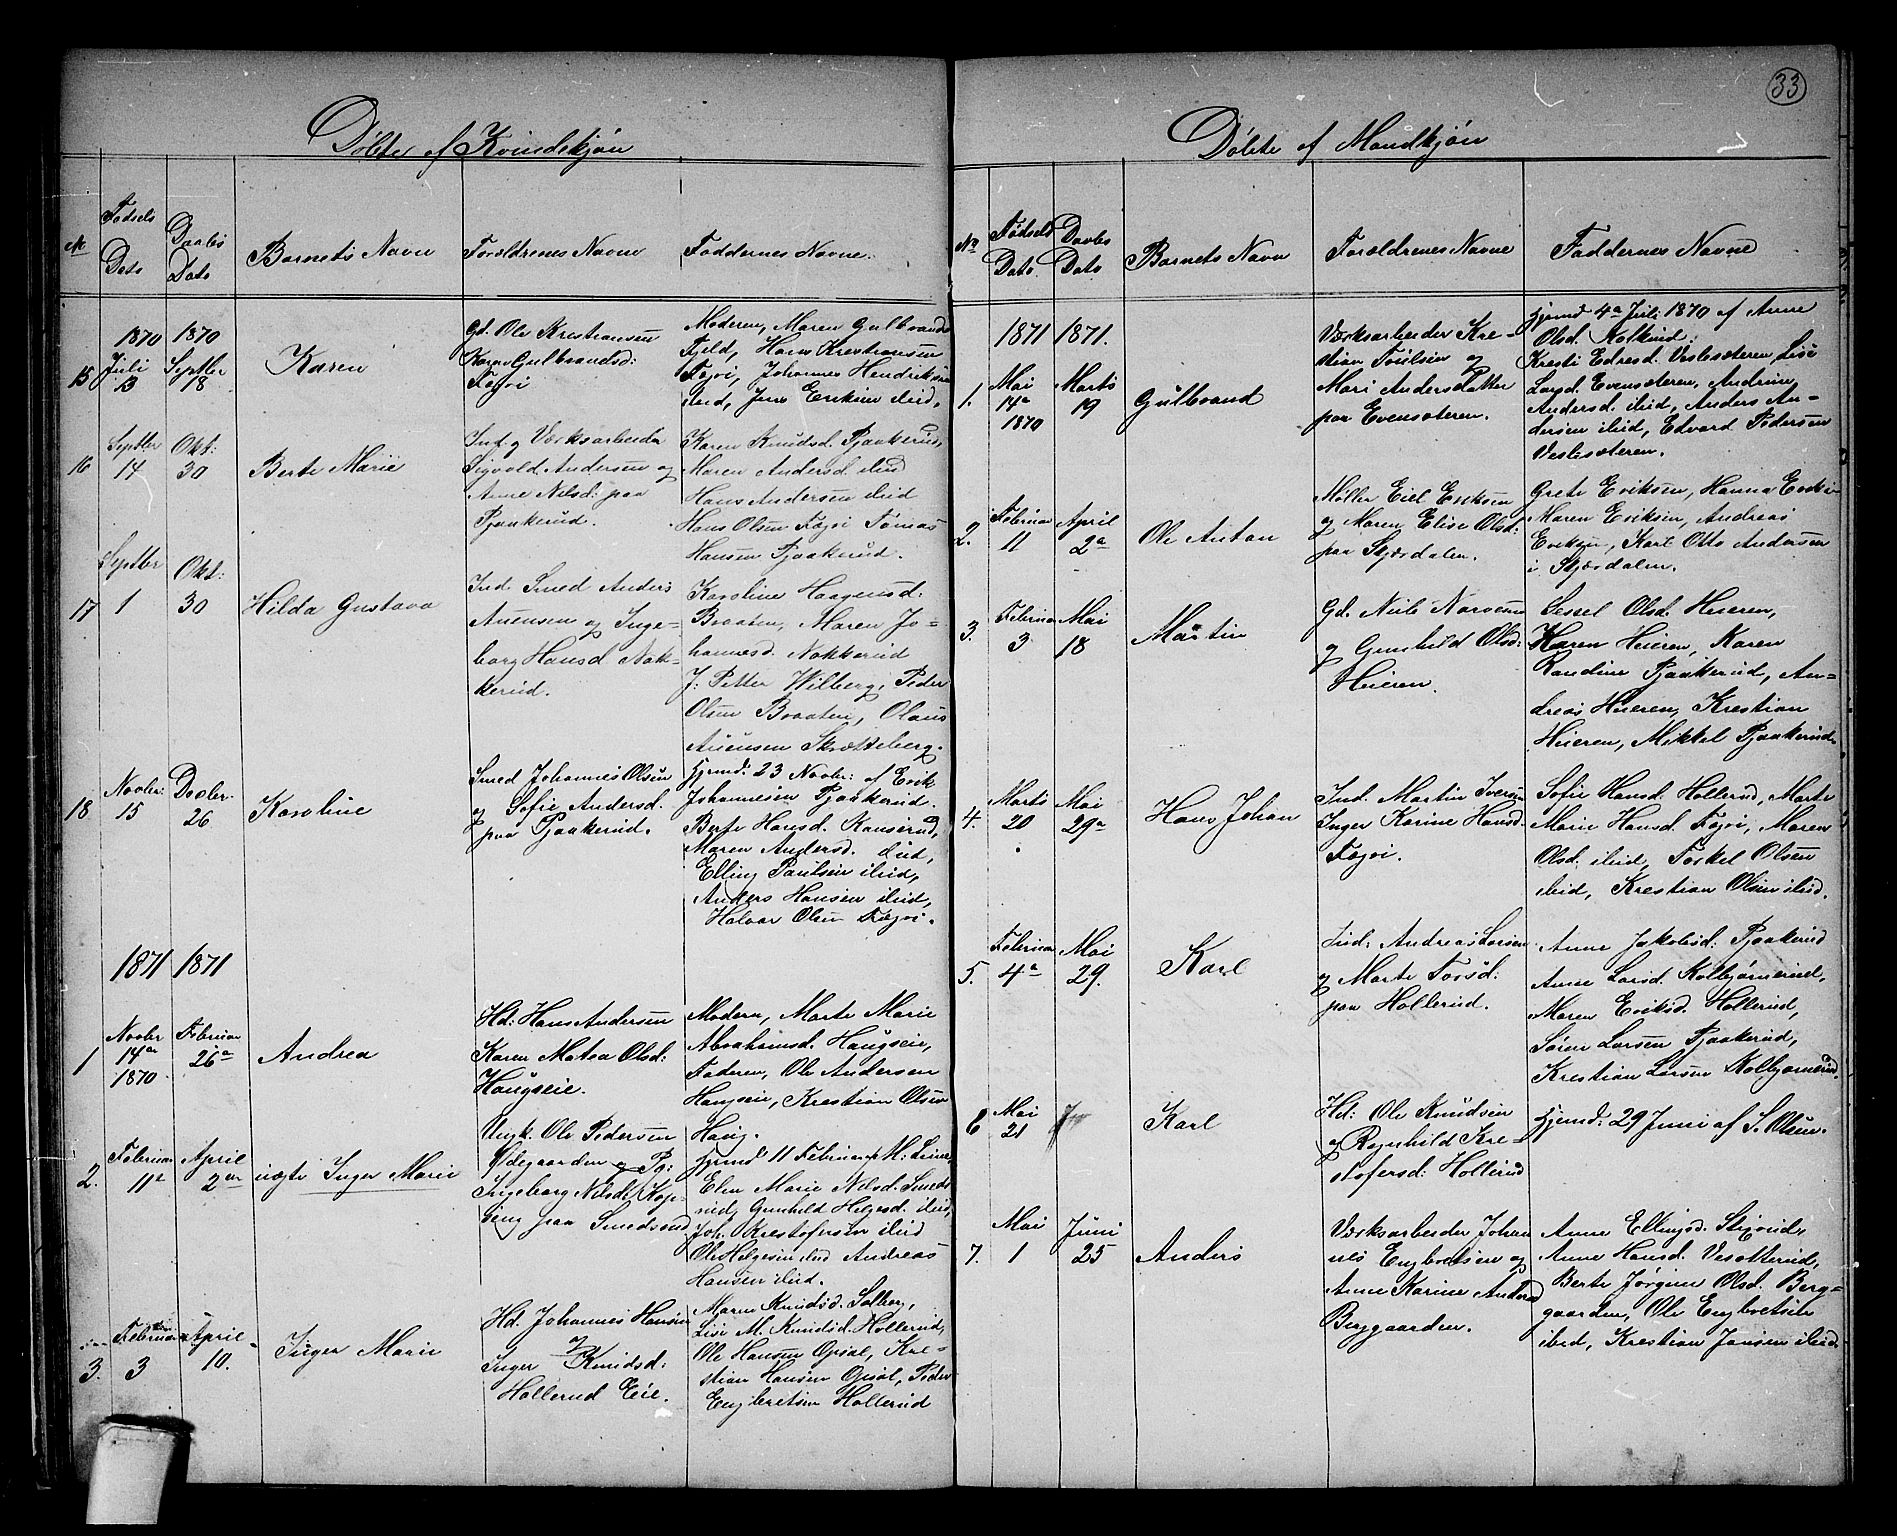 33
Döbte af Kvindekjön
№
Födsels Dato
Daabs Dato
Barnets Navn
Forældrenes Navne
Faddernes Navne.
15
1870 Juli 13
1870 Septbr 18
Karen
Gd. Ole Kristiansen
Karen Gulbrandsd:
Fægri
Moderen, Maren Gulbrands
Fjeld, Hans Krestiansen
Fægri, Johannes Hendriksen
ibid, Jens Eriksen ibid,
16
Septbr 14
Okt: 30
Berte Marie
Ind. og Værksarbeider
Sigvold Andersen og
Anne Nilsd: paa
Pjaakerud.
Karen Knudsd. Pjaakerud,
Maren Andersd ibid
Hans Andersen ibid
Hans Olsen Fægri Tomas
Hansen Pjaakerud.
17
Septbr 1
Okt: 30
Hilda Gustava
Ind. Smed Anders
Auensen og Inge-
borg Hansd Nok-
kerud.
Karoline Haagensd:
Braaten, Maren Jo-
hannesd. Nokkerud
J: Petter Wilberg, Peder
Olsen Braaten, Olaus
Auensen Skrætteberg.
18
Novbr: 15
Decbr. 26
Karoline
Smed Johannes Olsen
og Sofie Andersd.
paa Pjaakerud.
Hjemd: 23 Novbr: af Erik
Johannesen Pjaakerud.
Berte Hansd. Kanserud,
Maren Andersd. ibid,
Elling Paulsen ibid,
Anders Hansen ibid,
Halvor Olsen Fægri.
1871 1871
1
Novbr 14de 1870
Februar 26de
Andrea
Hd: Hans Andersen
Karen Matea Olsd:
Haugseie.
Modern, Marte Marie
Abrahamsd. Haugseie,
Faderen, Ole Andersen
Haugseie, Krestian Olsen
Haug.
2.
Februar 11te
April 2den
uægte Inger Marie
Ungk. Ole Pedersen
Ødegaarden og Pg:
Ingeborg Nilsd. Kop-
seng paa Smedsrud
Hjemd: 11 Februar af M: Leine,
Elen Marie Nilsd. Smeds
rud, Gunhild Helgesd. ibid,
Joh. Krestofersen ibid
Ole Helgesen ibid Andreas
Hansen ibid.
3.
Februar 3
April 10.
Inger Marie
Hd. Johannes Hansen
og
Inger Knudsd:
Hollerud Eie.
Maren Knudsd. Solberg,
Lise M. Knudsd. Hollerud,
Ole Hansen Opsal, Kre-
stian Hansen Opsal, Peder
Engbretsen Hollerud
Döbte af Mandkjön
No
Födsels Dato.
Daabs Dato
Barnets Navn
Forældrenes Navne
Faddernes Navne
1.
1871 Mai 14de 1870
1871. Marts 19
Gulbrand
Værksarbeider Kre-
stian Poulsen og
Mari Andersdatter
paa Evensæteren.
Hjemd 4de Juli 1870 af Anne
Olsd. Kolkind:
Kresti Edresd. Veslesæteren, Lise
Larsd. Evensæteren, Andrine
Andersd. ibid, Anders An-
dersen ibid, Edvard Pedersen
Veslesæteren.
2.
Februar 11
April 2de
Ole Anton
Møller Eiel Eriksen
og Maren Elise Olsd:
paa Skjærdalen.
Grete Eriksen, Hanna Eriksen
Maren Eriksen, Andreas
Eriksen, Karl Otto Andersen
i Skjærdalen.
3.
Februar 3
Mai 18
Martin
Gd. Niels Narvesen
og Gunhild Olsd:
Heieren.
Sessel Olsd. Heieren,
Karen Heieren, Karen
Randine Pjaakerud, An-
dreas Heieren, Krestian
Heieren, Mikkel Pjaakerud.
4.
Marts 20
Mai 29de
Hans Johan
Ind. Martin Iversen
Inger Karine Hansd.
Fægri.
Sofie Hansd. Hollerud, Marte
Marie Hansd. Fægri, Maren
Olsd. ibid, Torkel Olsen
ibid, Krestian Olsen ibid.
5.
Februar 4de
Mai 29.
Karl
Ind: Andreas Larsen
og Marte Torsd:
paa Hollerud.
Anne Jakobsd: Pjaakerud
Anne Larsd. Kolbjørnerud,
Maren Eriksd. Hollerud,
Søren Larsen Pjaakerud,
Krestian Larsen Kolbjørnerud.
6
Mai 21
Karl
Hd: Ole Knudsen
og Regnhild Kre-
stofersd. Hollerud
Hjemd: 29 Juni af S. Olsen.
7.
Mai 1
Juni 25
Anders
Værksarbeider Johan
nes Engbretsen og
Anne Karine Andersd
Berggaarden.
Anne Ellingsd. Stixrud,
Anne Hansd. Vesetterud,
Berte Jørgine Olsd. Berg-
gaarden, Ole Engbretsen
ibid, Krestian Jansen ibid